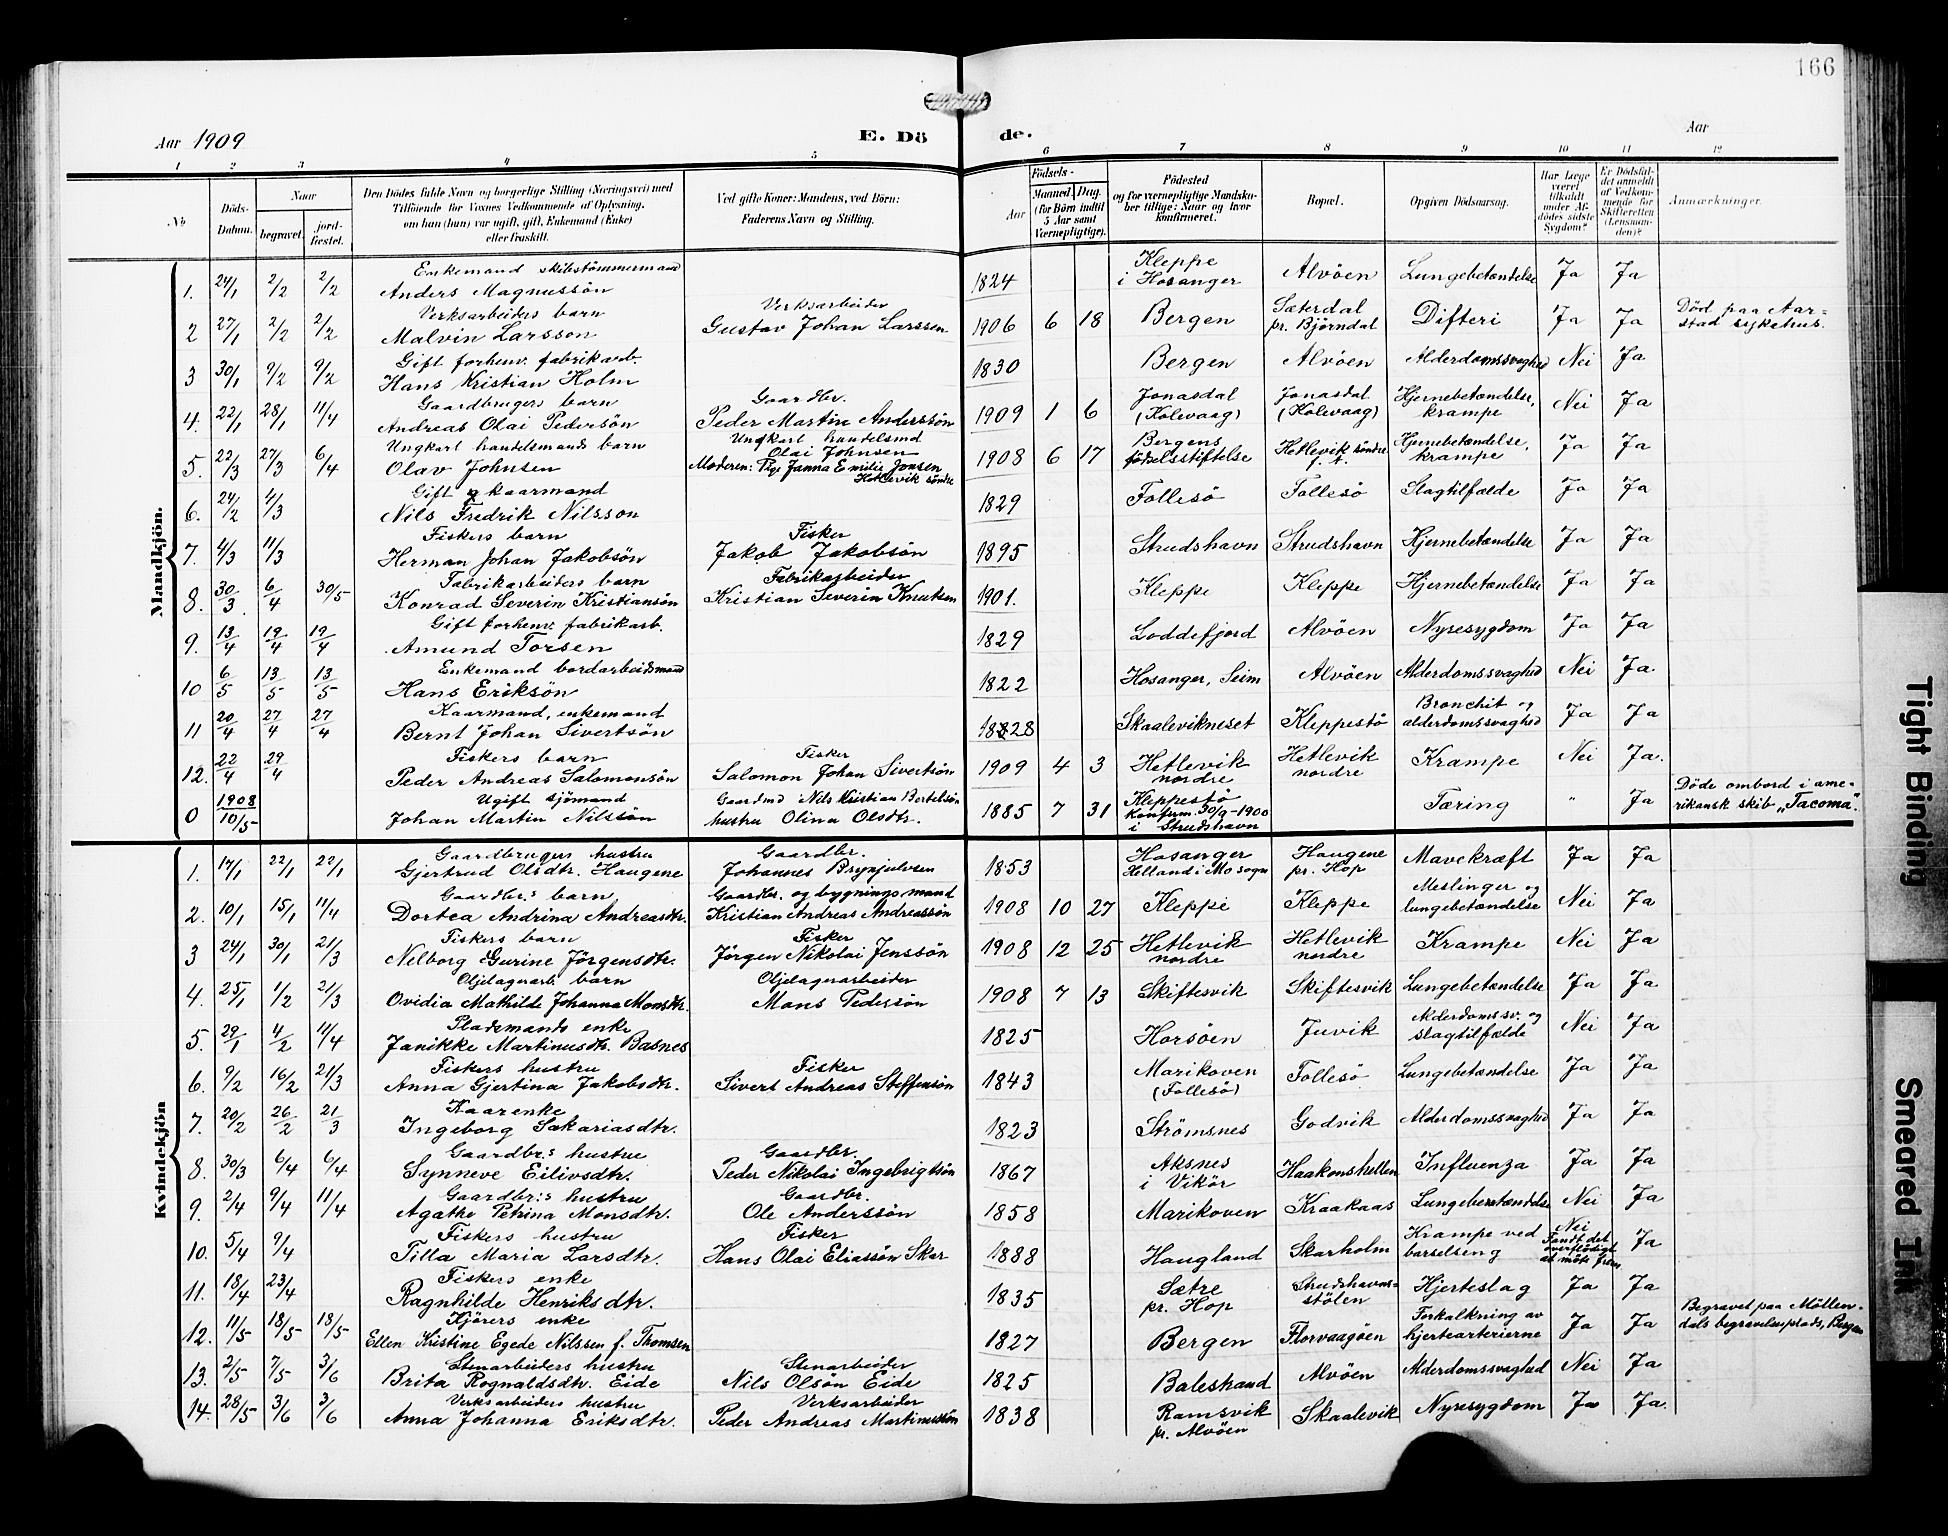 166
Aar 1909
E. Döde.
Aar
1 2 3 4 5 6 7 8 9 10 11 12
No
Döds-Datum.
Naar
begravet.
jord-fæstet.
Den Dödes fulde Navn og borgerlige Stilling (Næringsvei) med
Tilföiende for Voxnes Vedkommende af Oplysning,
om han (hun) var ugift, gift, Enkemand (Enke)
eller fraskilt.
Ved gifte Koner: Mandens, ved Börn:
Faderens Navn og Stilling.
Födsels-
Aar
Maaned. Dag.
(for Börn indtil
5 Aar samt
Værnepligtige).
Födested
og for værnepligtige Mandska-
ber tillige: Naar og hvor
konfirmeret.
Bopæl.
Opgiven Dödsaarsag.
Har Læge
været
tilkaldt
under Af-
dödes sidste
Sygdom?
Er Dödsfal-
det anmeldt
af Vedkom-
mende for
Skifteretten
(Lensman-
den)?
Anmærkninger.
Mandkjön.
1. 24/1 2/2 2/2 Enkemand skibstömmermand Anders Magnussön 1824 Kleppe i Hosanger Alvöen Lungebetændelse Ja Ja
2 27/1 2/2 2/2 Verksarbeiders barn Malvin Larsson Verksarbeider Gustav Johan Larssen 1906 6 18 Bergen Sætersdal pr. Bjørndal Difteri Ja Ja Död paa Aar-stad sykehus.
3 30/1 9/2 9/2 Gift forhenv. fabrikarb. Hans Kristian Holm 1830 Bergen Alvöen Alderdomssvaghed Nei Ja
4. 22/1 28/1 11/4 Gaardbrugers barn Andreas Olai Pedersön Gaardbr. Peder Martin Anderssön 1909 1 6 Jonasdal (Kolevaag) Jonasdal (Kolevaag) Hjernebetændelse, krampe Nei Ja
5. 22/3 27/3 6/4 Ungkarl handelsmands barn Olav Johnsen Ungkarl handelsmd Olai Johnsen Moderen: Pige Janna Emilie Jonsen Hetlevik söndre 1908 6 17 Bergens födselsstiftelse Hetlevik söndre f. t. Hjernebetændelse, krampe Ja Ja
6. 24/2 4/3 Gift kaarmand Nils Fredrik Nilsson 1829 Follesö Follesö Slagtilfælde Ja Ja
7. 4/3 11/3 Fiskers barn Herman Johan Jakobsön Fisker Jakob Jakobsön 1895 Strudshavn Strudshavn Hjernebetændelse Ja Ja
8. 30/3 6/4 30/5 Fabrikarbeiders barn Konrad Severin Kristiansön Fabrikarbeider Kristian Severin Knutsen 1901. Kleppe Kleppe Hjernebetændelse Ja Ja
9. 13/4 19/4 19/4 Gift forhenv. fabrikarb. Amund Torsen 1829 Loddefjord Alvöen Nyresygdom Ja Ja
10 6/5 13/5 13/5 Enkemand bordarbeidsmand Hans Eriksön 1822 Hosanger, Seim Alvöen Alderdomssvaghed Nei Ja.
11 20/4 27/4 27/4 Kaarmand, enkemand Bernt Johan Sivertsön 1828 Skaalevikneset Kleppestö Bronchit og alderdomssvaghed Ja Ja
12. 22/4 29/4 Fiskers barn Peder Andreas Salomonsön Fisker Salomon Johan Sivertsön 1909 4 3 Hetlevik nordre Hetlevik nordre Krampe Nei Ja.
0 1908 10/5 Ugift sjömand Johan Martin Nilssön Gaardmd Nils Kristian Bertelsön hustru Olina Olsdtr. 1885 7 31 Kleppestö Konfirm. 30/9-1900 i Strudshavn Tæring " Ja Döde ombord i ame-rikansk skib „Tacoma".
Kvindekjön
1. 17/1 22/1 22/1 Gaardbrugers hustru Gjertrud Olsdtr. Haugene Gaardbr. Johannes Brynjulvsen 1853 Hosanger Helland i Mo sogn Haugene pr. Hop Mavekræft Ja Ja
2. 10/1 15/1 11/4 Gaardbr.s barn Dortea Andrina Andreasdtr. Gaardbr. og bygningsmand Kristian Andreas Andreassön 1908 10 27 Kleppe Kleppe Meslinger og lungebetændelse Nei Ja
3 24/1 30/1 21/3 Fiskers barn Nelborg Gurine Jörgensdtr. Fisker Jörgen Nikolai Jenssön 1908 12 25 Hetlevik nordre Hetlevik nordre Krampe Nei Ja
4. 25/1 1/2 21/3 Oljelagerarb. barn Ovidia Mathilde Johanna Monsdtr. Oljelagerarbeider Mons Pedersön 1908 7 13 Skiftesvik Skiftesvik Lungebetændelse Ja Ja
5. 29/1 4/2 11/4 Pladsmands enke Janikke Martinusdtr. Basnes 1825 Horsöen Juvik Alderdomssv. og slagtilfælde Nei Ja
6. 9/2 16/2 21/3 Fiskers hustru Anna Gjertina Jakobsdtr. Fisker Sivert Andreas Steffensön 1843 Marikoven (Follesö) Follesö Lungebetændelse Ja Ja
7. 20/2 26/2 21/3 Kaarenke Ingeborg Sakariasdtr. 1823 Strömsnes Godvik Alderdomssvaghed Ja Ja
8. 30/3 6/4 6/4 Gaardbr.s hustru Synneve Eilivsdtr. Gaardbr. Peder Nikolai Ingebrigtsön 1867 Aksnes i Vikör Haakonshellen Influenza Ja Ja
9. 2/4 9/4 11/4 Gaardbr.s hustru Agathe Petrina Monsdtr. Gaardbr. Ole Anderssön 1858 Marikoven Kraakaas Lungebetændelse Nei Ja
10. 5/4 9/4 Fiskers hustru Tilla Maria Larsdtr. Fisker Hans Olai Eliassön Skar 1888 Haugland Skarholm Krampe ved barselseng Nei Fandt det overflödigt at möte frem Ja
11. 18/4 23/4 Fiskers enke Ragnhilde Henriksdtr. 1835 Sætre pr. Hop Strudshavns-stölen Hjerteslag Ja Ja
12. 11/5 18/5 18/5 Kjörers enke Ellen Kristine Egede Nilssen f. Thomsen 1827 Bergen Florvaagöen Forkalkning av hjertearterierne Ja Ja Begravet paa Möllen-dals begravelsesplads, Bergen
13. 2/5 7/5 3/6 Stenarbeiders hustru Brita Rognaldsdtr. Eide Stenarbeider Nils Olsön Eide 1825 Balestrand Alvöen Alderdomssvaghed Nei Ja
14. 28/5 3/6 3/6 Verksarbeiders hustru Anna Johanna Eriksdtr. Verksarbeider Peder Andreas Martinussön 1838 Ramsvik pr. Alvöen Skaalevik Nyresygdom Ja Ja.
Tight Binding
Smeared Ink